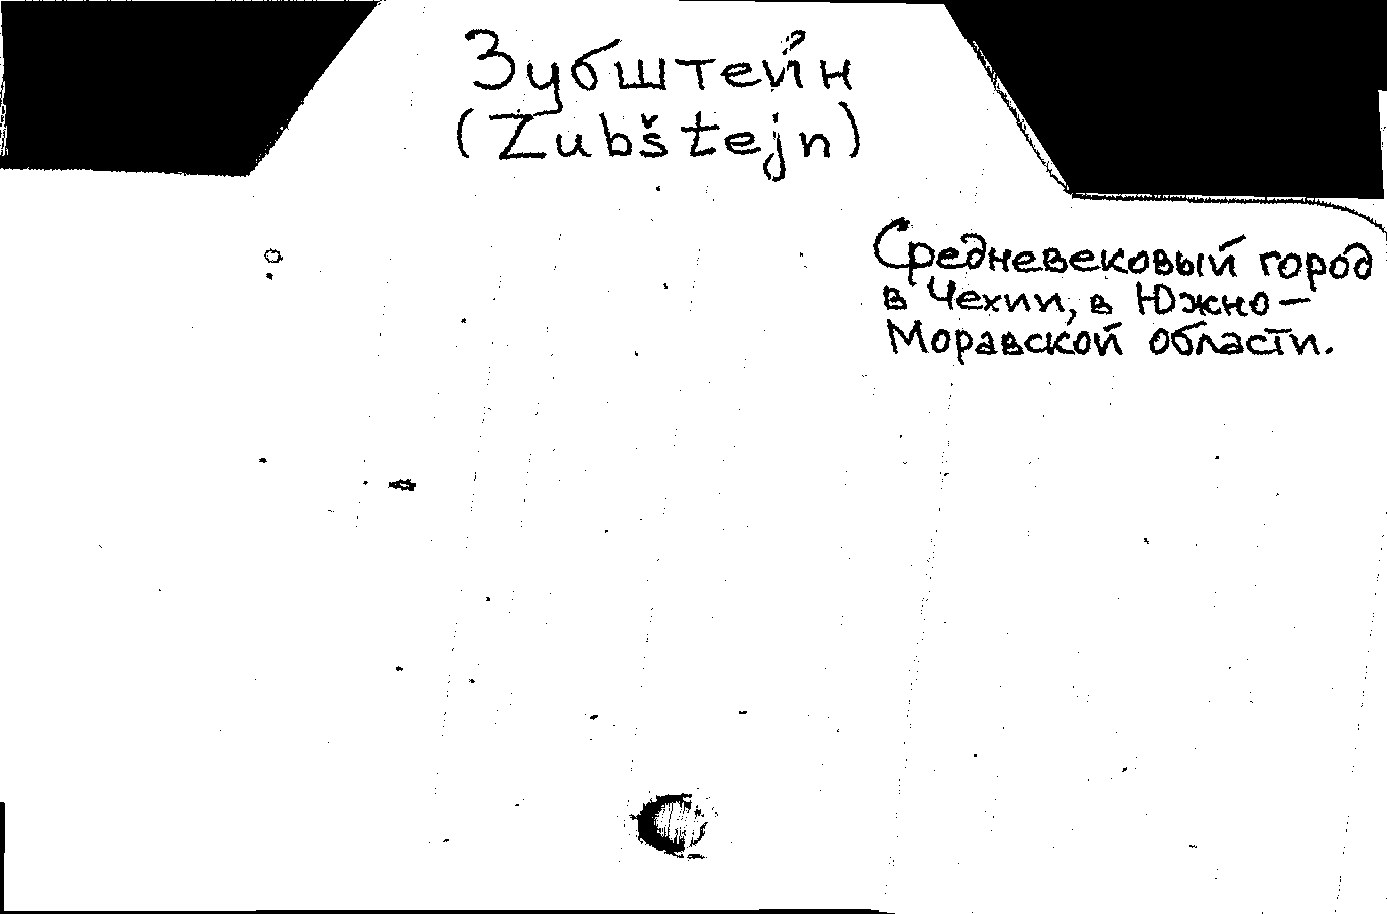 Зубштейн
(Zubštejn)
Средневековый город
в Чехии, в Южно-
Моравской области.